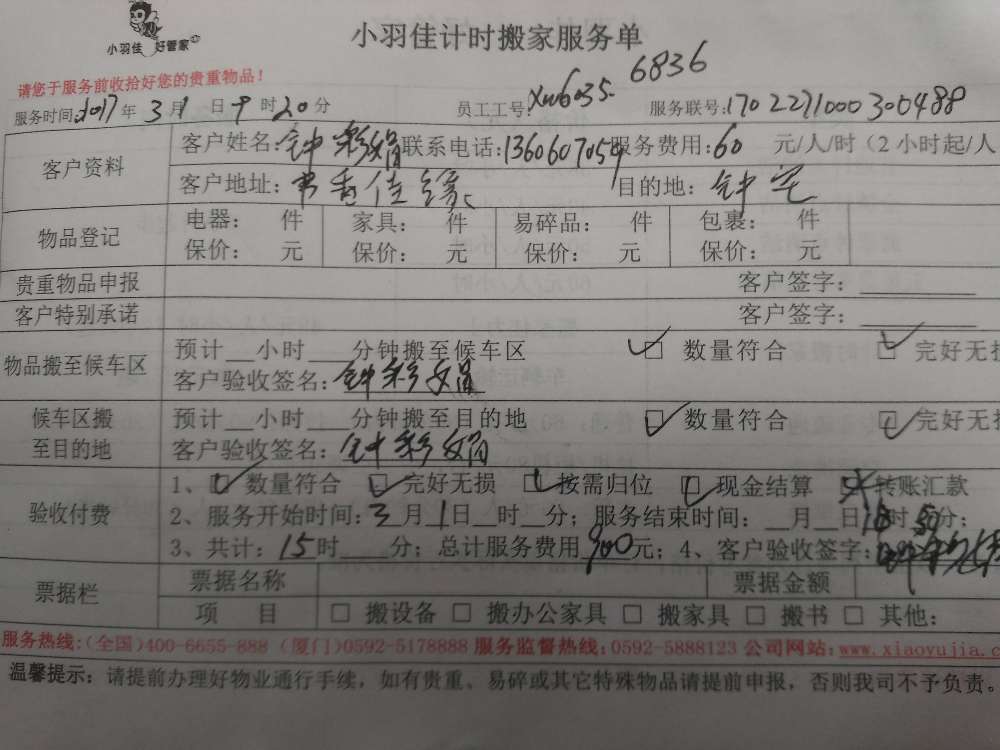 小羽佳 好管家
小羽佳计时搬家服务单
请您于服务前收拾好您的贵重物品！
服务时间：2017年3月1日 时20分 员工工号：xm6035 6836 服务联号：1702271000300488
客户资料 客户姓名：钟彩娟 联系电话：1360607059 服务费用：60 元/人/时（2小时起/人
客户地址：书香佳缘 目的地：钟宅
物品登记 电器： 件 家具： 件 易碎品： 件 包裹： 件
保价： 元 保价： 元 保价： 元 保价： 元
贵重物品申报 客户签字：
客户特别承诺 客户签字：
物品搬至候车区 预计__小时___分钟搬至候车区 ☑ 数量符合 ☑ 完好无损
客户验收签名：钟彩娟
候车区搬至目的地 预计__小时___分钟搬至目的地 ☑ 数量符合 ☑ 完好无损
客户验收签名：钟彩娟
验收付费 1、☑ 数量符合 ☑ 完好无损 ☑ 按需归位 ☑ 现金结算 转账汇款
2、服务开始时间：3月1日__时__分；服务结束时间：__月__日18时50分；
3、共计：15时___分；总计服务费用900元；4、客户验收签字：
票据栏 票据名称 票据金额
项 目 □ 搬设备 □ 搬办公家具 □ 搬家具 □ 搬书 □ 其他：
服务热线：(全国)400-6655-888 (厦门)0592-5178888 服务监督热线：0592-5888123 公司网站：www.xiaoyujia.c
温馨提示：请提前办理好物业通行手续，如有贵重、易碎或其它特殊物品请提前申报，否则我司不予负责。